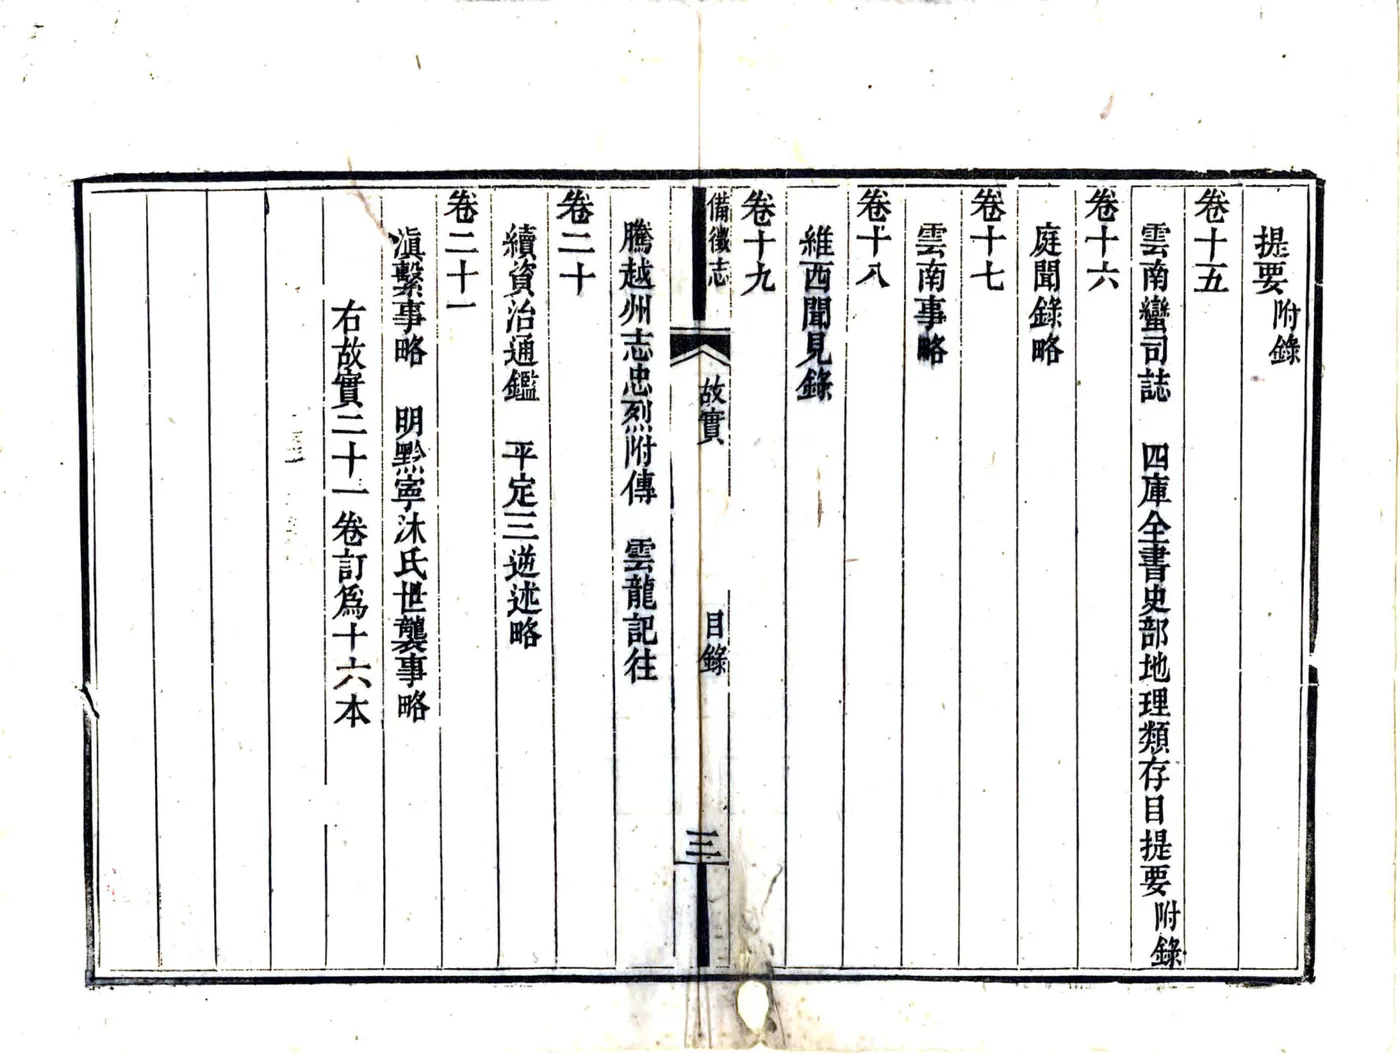 提要附錄
卷十五
雲南蠻司誌　四庫全書史部地理類存目提要附錄
卷十六
庭聞錄略
卷十七
雲南事略
卷十八
維西聞見錄
卷十九
備徵志　故實　目錄　三
騰越州志忠烈附傳　雲龍記往
卷二十
續資治通鑑　平定三逆述略
卷二十一
滇繫事略　明黔寧沐氏世襲事略
右故實二十一卷訂爲十六本